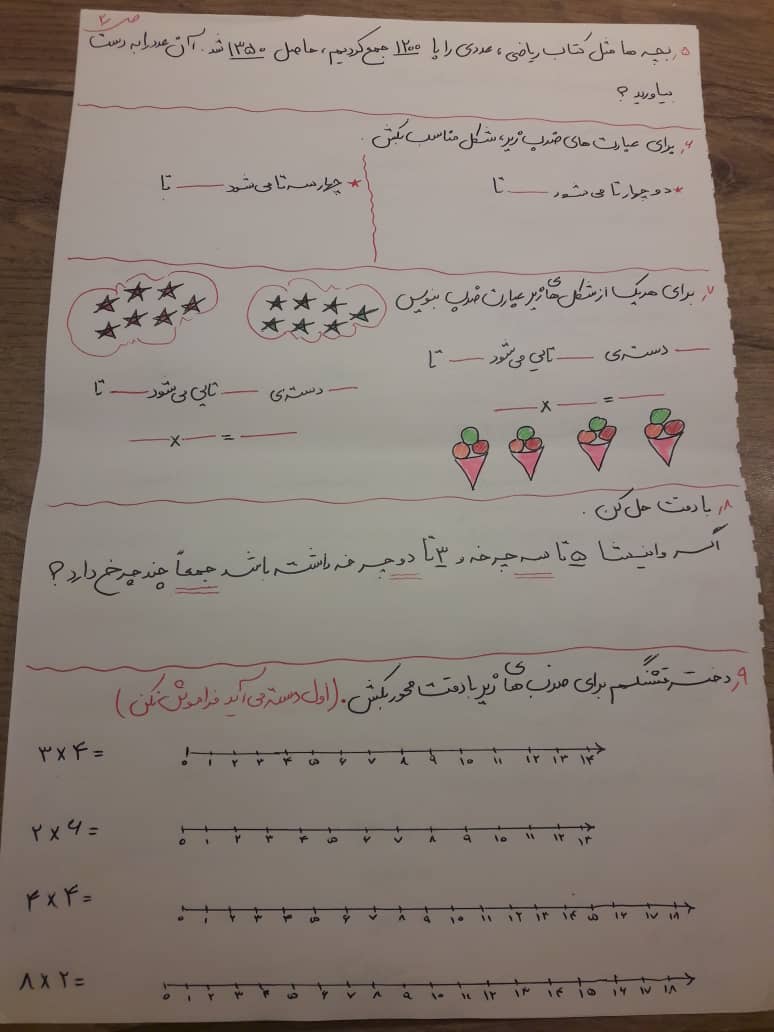 ص ۲
۵. بچه ها مثل کتاب ریاضی، عددی را با ۱۲۰۰ جمع کردیم، حاصل ۱۳۵۰ شد. آن عدد را به دست
بیاورید؟
۶. برای عبارت های ضرب زیر، شکل مناسب بکش.
* دو چهارتا می شود ___ تا
* چهار سه تا می شود ___ تا
۷. برای هر یک از شکل های زیر عبارت ضرب بنویس
___ دسته ی ___ تایی می شود ___ تا
___ x ___ = ___
___ دسته ی ___ تایی می شود ___ تا
___ x ___ = ___
۸. با دقت حل کن.
اگر وانیشا ۵ تا سه چرخه و ۳ تا دو چرخه داشته باشد جمعاً چند چرخ دارد؟
۹. دختر قشنگم برای ضرب های زیر با دقت محور بکش. (اول دسته می آید فراموش نکن)
۳ x ۴ =
۰ ۱ ۲ ۳ ۴ ۵ ۶ ۷ ۸ ۹ ۱۰ ۱۱ ۱۲ ۱۳ ۱۴
۲ x ۶ =
۰ ۱ ۲ ۳ ۴ ۵ ۶ ۷ ۸ ۹ ۱۰ ۱۱ ۱۲ ۱۳
۴ x ۴ =
۰ ۱ ۲ ۳ ۴ ۵ ۶ ۷ ۸ ۹ ۱۰ ۱۱ ۱۲ ۱۳ ۱۴ ۱۵ ۱۶ ۱۷ ۱۸
۸ x ۲ =
۰ ۱ ۲ ۳ ۴ ۵ ۶ ۷ ۸ ۹ ۱۰ ۱۱ ۱۲ ۱۳ ۱۴ ۱۵ ۱۶ ۱۷ ۱۸